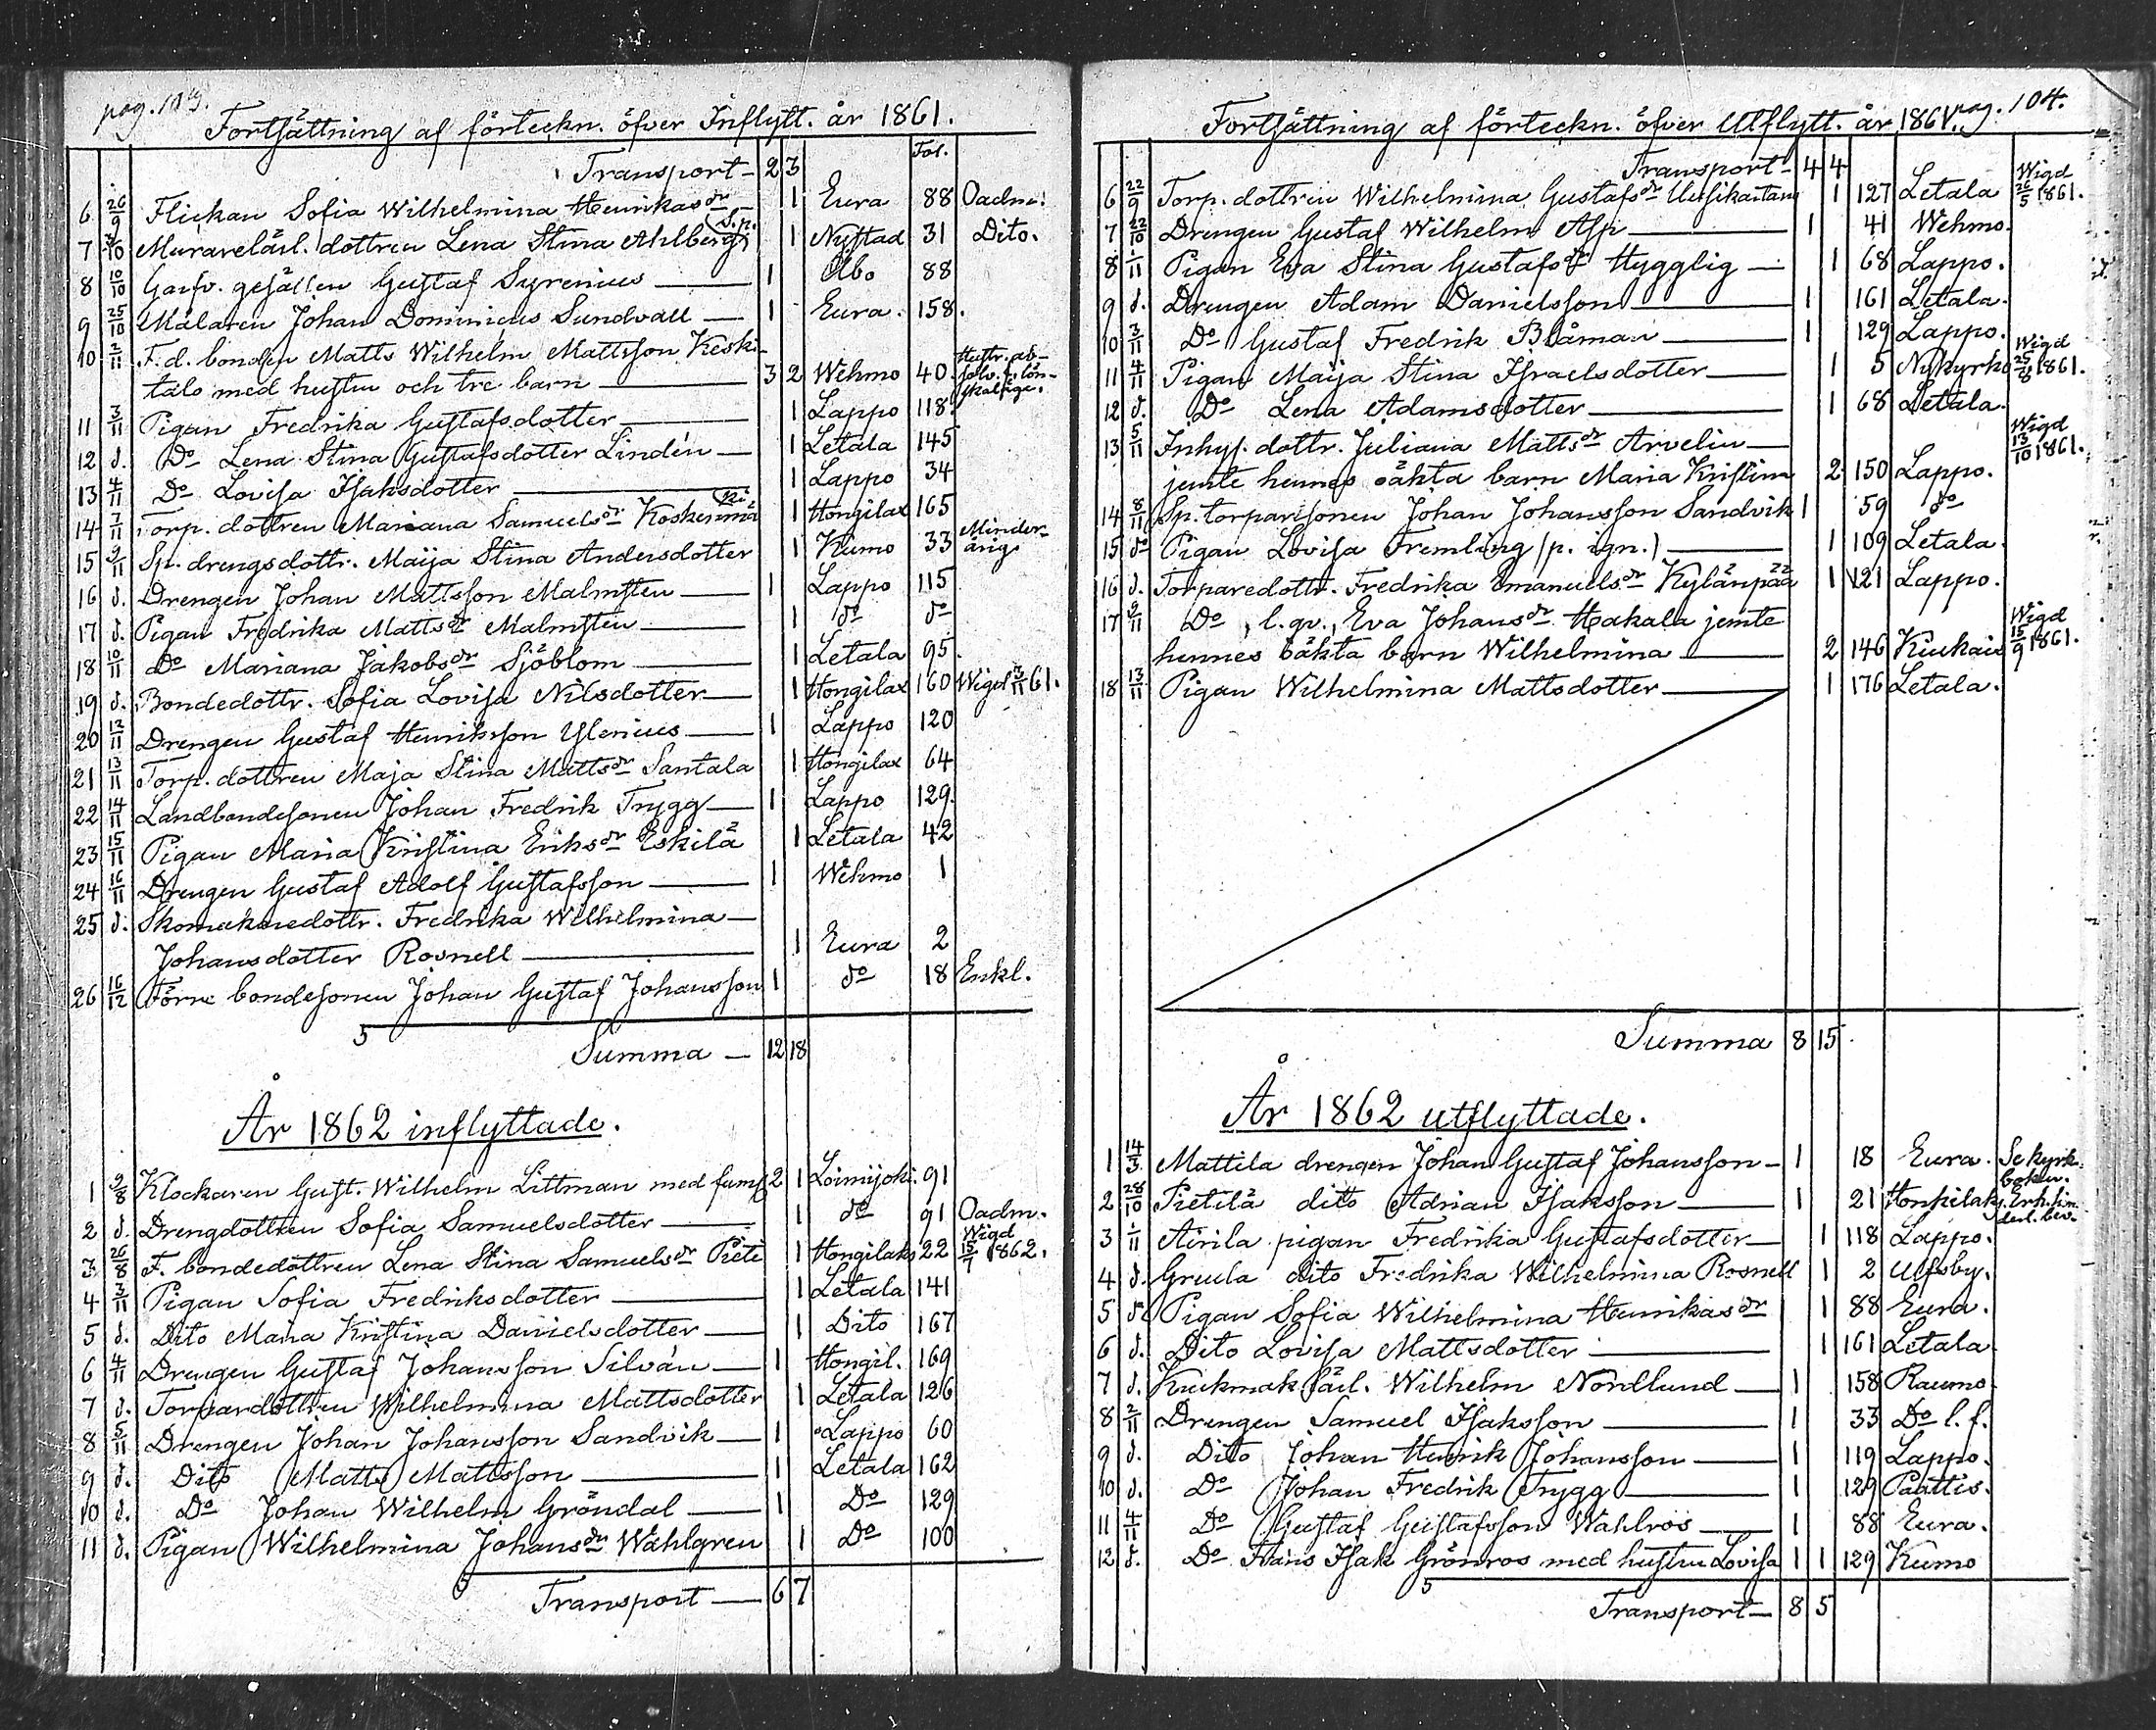 pag. 103.
Fortsättning af förteckn. öfver Inflytt. år 1861.
Fol.
Transport — 2 3
6 26/9 Flickan Sofia Wilhelmina Henrikasdr — 1 Eura 88 Oadm.
7 3/10 Murarelärl. dottren Lena Stina Ahlberg (s.p.) 1 Nystad 31 Dito.
8 10/10 Garfv. gesällen Gustaf Syrenius — 1 Åbo 88
9 25/10 Målaren Johan Dominicus Sundvall — 1 Eura. 158.
10 2/11 F. d. bonden Matts Wilhelm Mattsson Keski-
talo med hustru och tre barn — 3 2 Wehmo 40. Hustr. ab-
solv. f. lön-
skaläge.
11 3/11 Pigan Fredrika Gustafsdotter — 1 Lappo 118.
12 d. Do Lena Stina Gustafsdotter Lindén — 1 Letala 145
13 4/11 Do Lovisa Isaksdotter — 1 Lappo 34
14 7/11 Torp. dottren Mariana Samuelsdr Koskenniemi 1 Hongilax 165
15 9/11 Sp. drengsdottr. Maija Stina Andersdotter 1 Kumo 33 Minder-
årig
16 d. Drengen Johan Mattsson Malmsten — 1 Lappo 115
17 d. Pigan Fredrika Mattsdr Malmsten — 1 do do
18 10/11 Do Mariana Jakobsdr Sjöblom — 1 Letala 95.
19 d. Bondedottr. Sofia Lovisa Nilsdotter — 1 Hongilax 160 Wigd 3/11 61.
20 12/11 Drengen Gustaf Henriksson Ylenius — 1 Lappo 120
21 13/11 Torp. dottren Maja Stina Mattsdr Santala 1 Hongilax 64
22 14/11 Landbondesonen Johan Fredrik Trygg — 1 Lappo 129.
23 15/11 Pigan Maria Kristina Eriksdr Eskilä 1 Letala 42
24 16/11 Drengen Gustaf Adolf Gustafsson — 1 Wehmo 1
25 d. Skomakaredottr. Fredrika Wilhelmina —
Johansdotter Rosnell — 1 Eura 2
26 16/12 Förre bondesonen Johan Gustaf Johansson 1 do 18 Enkl.
Summa — 12 18
År 1862 inflyttade.
1 9/8 Klockaren Gust. Wilhelm Littman med famil 2 1 Loimijoki. 91
2 d. Drengdottren Sofia Samuelsdotter — 1 do 91 Oadm.
3 26/8 F. bondedottren Lena Stina Samuelsdr Pieti 1 Hongilaks 22 Wigd 15/7 1862.
4 3/11 Pigan Sofia Fredriksdotter — 1 Letala 141
5 d. Dito Maria Kristina Danielsdotter — 1 Dito 167
6 4/11 Drengen Gustaf Johansson Silván — 1 Hongil. 169
7 d. Torpardottren Wilhelmina Mattsdotter 1 Letala 126
8 5/11 Drengen Johan Johansson Sandvik — 1 Lappo 60
9 d. Dito Matts Mattsson — 1 Letala 162
10 d. Do Johan Wilhelm Gröndal — 1 Do 129
11 d. Pigan Wilhelmina Johansdr Wahlgren 1 Do 100
Transport — 6 7
pag. 104.
Fortsättning af förteckn. öfver Utflytt. år 1861.
Transport — 4 4
6 22/9 Torp. dottren Wilhelmina Gustafsdr Uusikartano 1 127 Letala Wigd 26/5 1861.
7 22/10 Drengen Gustaf Wilhelm Alp — 1 41 Wehmo.
8 1/11 Pigan Eva Stina Gustafsdr Hygglig — 1 68 Lappo.
9 d. Drengen Adam Danielsson — 1 161 Letala.
10 3/11 Do Gustaf Fredrik Blåman — 1 129 Lappo.
11 4/11 Pigan Maija Stina Israelsdotter — 1 5 Nykyrko Wigd 25/8 1861.
12 d. Do Lena Adamsdotter — 1 68 Letala.
13 5/11 Inhys. dottr. Juliana Mattsdr Arvelin —
jemte hennes oäkta barn Maria Kristina 2 150 Lappo. Wigd 13/10 1861.
14 8/11 Sp. torparesonen Johan Johansson Sandvik 1 59 do
15 do Pigan Lovisa Fremling (p. ign.) — 1 109 Letala.
16 d. Torparedottr. Fredrika Emanuelsdr Kylänpää 1 121 Lappo.
17 9/11 Do, l. qv., Eva Johansdr Hakala jemte
hennes oäkta barn Wilhelmina — 2 146 Kiukais Wigd 15/9 1861.
18 13/11 Pigan Wilhelmina Mattsdotter — 1 176 Letala.
Summa 8 15
År 1862 utflyttade.
1 14/3 Mattila drengen Johan Gustaf Johansson — 1 18 Eura. Se kyrk.
boken.
2 28/10 Pietilä dito Adrian Isaksson — 1 21 Honkilaks.
3 1/11 Airila pigan Fredrika Gustafsdotter — 1 118 Lappo.
4 d. Greula dito Fredrika Wilhelmina Rosnell 1 2 Ulfsby.
5 d. Pigan Sofia Wilhelmina Henrikasdr 1 88 Eura.
6 d. Dito Lovisa Mattsdotter — 1 161 Letala
7 d. Krukmak. lärl. Wilhelm Nordlund — 1 158 Raumo.
8 2/11 Drengen Samuel Isaksson — 1 33 Do l. f.
9 d. Dito Johan Henrik Johansson — 1 119 Lappo.
10 d. Do Johan Fredrik Trygg — 1 129 Paattis.
11 4/11 Do Gustaf Gustafsson Wahlros — 1 88 Eura.
12 d. Do Frans Isak Grönros med hustru Lovisa 1 1 129 Kumo
Transport — 8 5